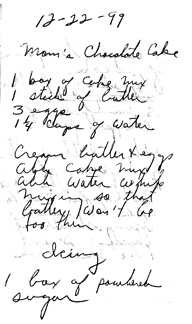 12-22-99
Mom's Chocolate Cake
1 box of cake mix
1 stick of butter
3 eggs
1 1/4 cups of water
Cream butter & eggs
Add Cake mix
Add water while
mixing so that
batter won't be
too thin.
Icing
1 box of powdered
sugar